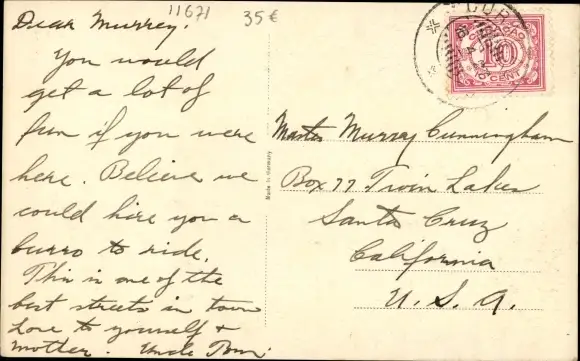 11671
35 €
Dear Murrey.
You would
get a lot of
fun if you were
here. Believe we
could hire you a
burro to ride.
This is one of the
best streets in town
Love to yourself &
mother. Uncle Tom.
Made in Germany
CURAÇAO
10
10 CENT
Master Murray Cunningham
Box 77 Twin Lakes
Santa Cruz
California
U. S. A.